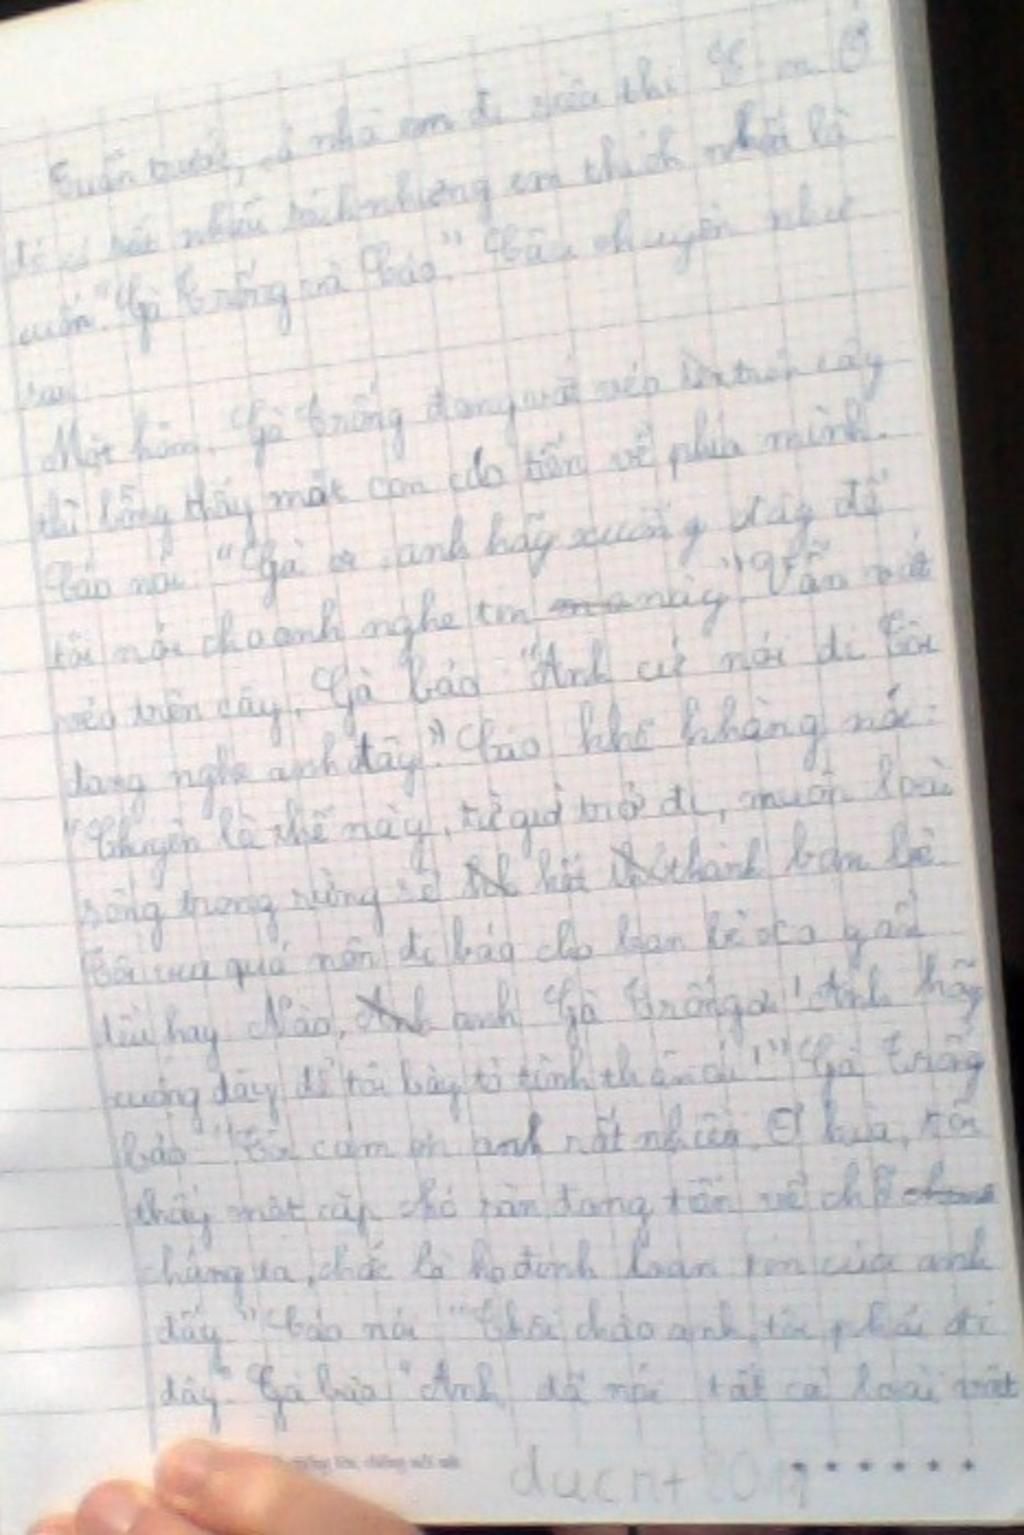 Tuần trước, cả nhà em đi siêu thị. Ở
đó có rất nhiều sách nhưng em thích nhất là
cuốn "Gà Trống và Cáo". Câu chuyện như
sau:
Một hôm, Gà Trống đang vắt vẻo trên cây
thì bỗng thấy một con cáo tiến về phía mình.
Cáo nói: "Gà ơi, anh hãy xuống đây để
tôi nói cho anh nghe tin này". Vẫn vắt
vẻo trên cây, Gà bảo: "Anh cứ nói đi tôi
đang nghe anh đây". Cáo khẽ khàng nói:
"Chuyện là thế này, từ giờ trở đi, muôn loài
sống trong rừng sẽ kết thành bạn bè.
Tôi vui quá nên đi báo cho bạn bè xa gần
đều hay. Nào, anh Gà Trống ơi! Anh hãy
xuống đây để tôi bày tỏ tình thân ái!" Gà Trống
bảo: "Tôi cảm ơn anh rất nhiều. Ơ kìa, tôi
thấy một cặp chó săn đang tiến về chỗ
chúng ta, chắc là họ định loan tin của anh
đấy". Cáo nói: "Thôi chào anh, tôi phải đi
đây". Gà bảo: "Anh đã nói tất cả loài vật
ducnt